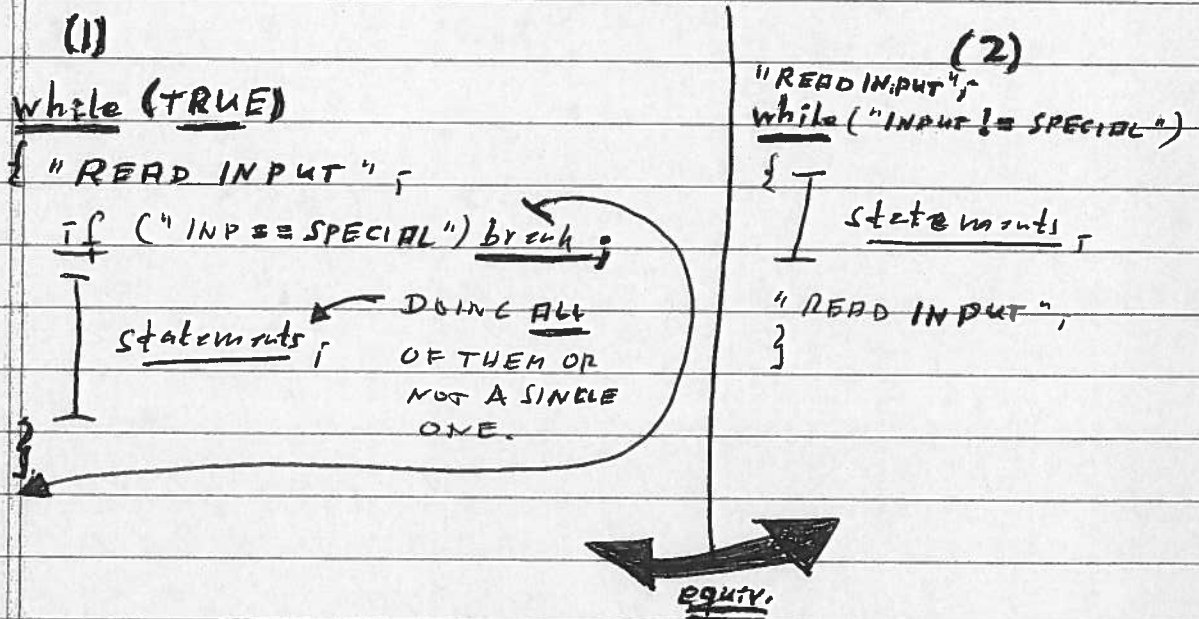 (1)
while (TRUE)
{ "READ INPUT";
if ("INP == SPECIAL") break;
statements;
DOING ALL
OF THEM OR
NOT A SINGLE
ONE.
}
(2)
"READ INPUT";
while ("INPUT != SPECIAL")
{
statements;
"READ INPUT";
}
equiv.